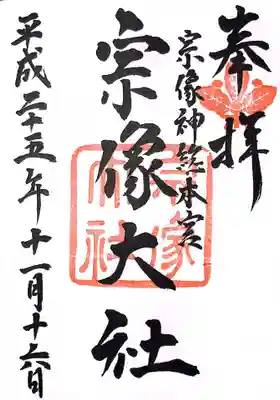 奉拝
宗像神総本宮
宗像大社
平成二十五年十一月十六日